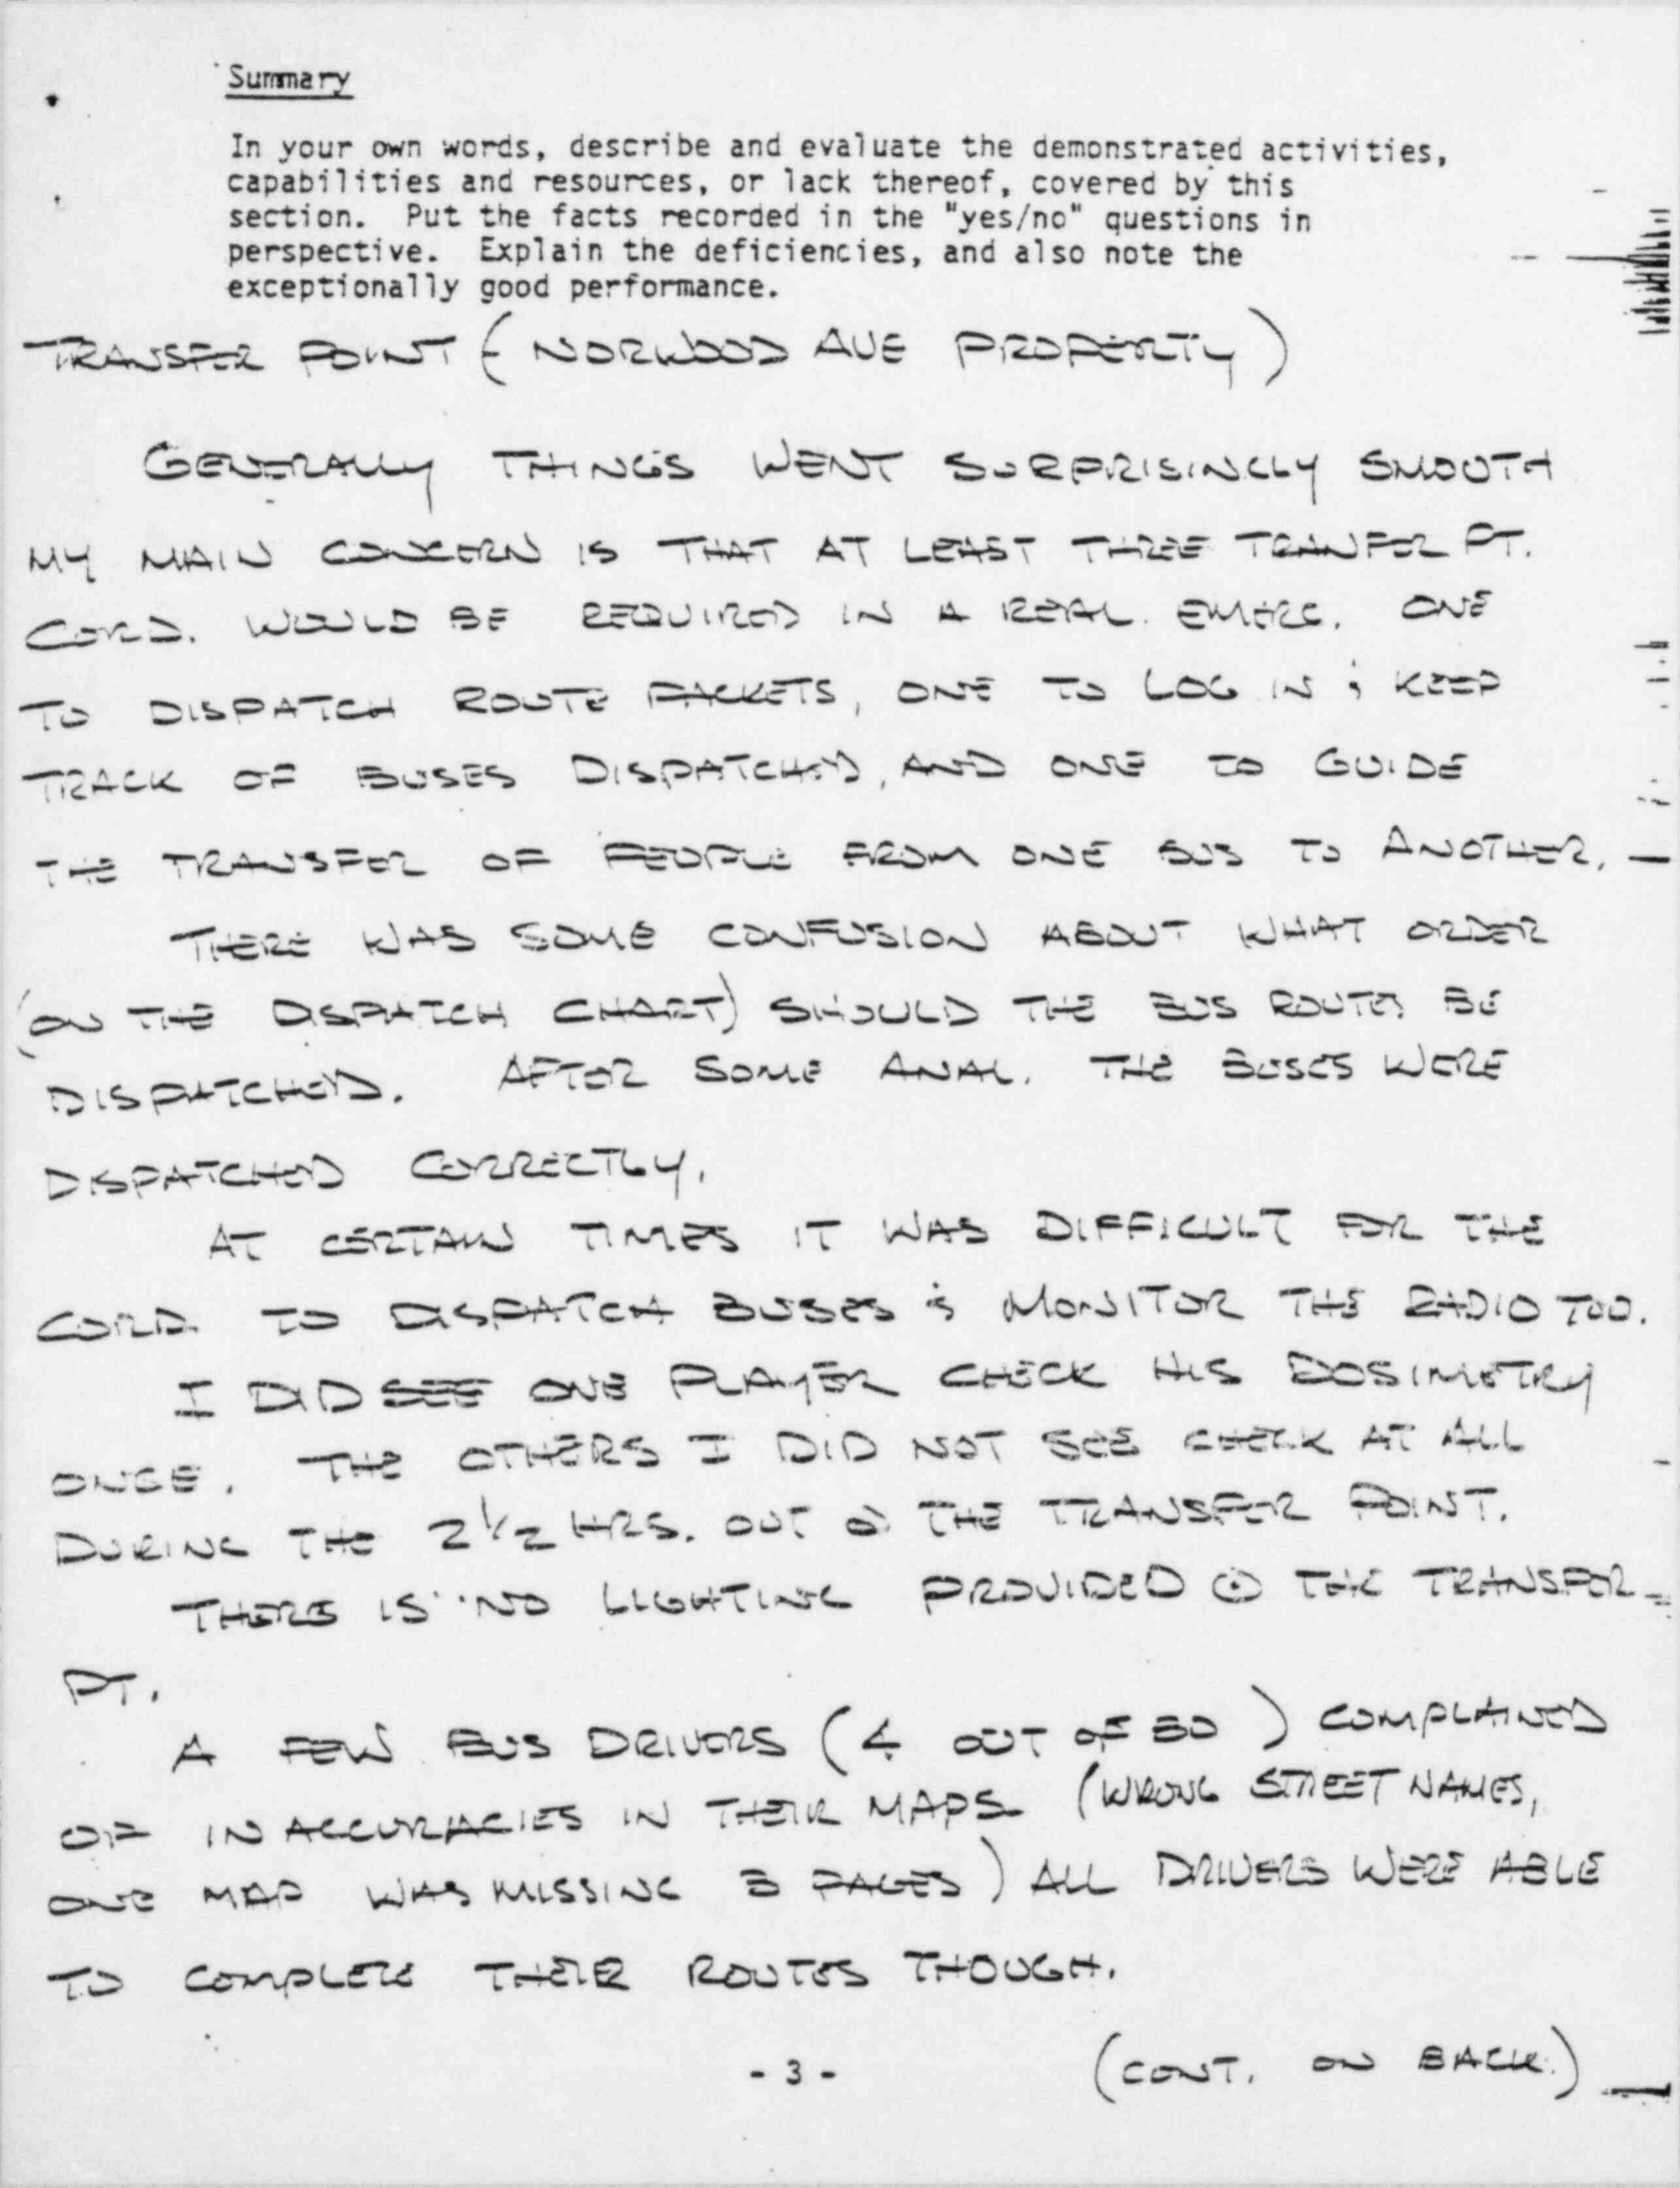 Summary
In your own words, describe and evaluate the demonstrated activities,
capabilities and resources, or lack thereof, covered by this
section. Put the facts recorded in the "yes/no" questions in
perspective. Explain the deficiencies, and also note the
exceptionally good performance.
TRANSFER POINT (NORWOOD AVE PROPERTY)
GENERALLY THINGS WENT SURPRISINGLY SMOOTH
MY MAIN CONCERN IS THAT AT LEAST THREE TRANFER PT.
CORD. WOULD BE REQUIRED IN A REAL EMERG. ONE
TO DISPATCH ROUTE PACKETS, ONE TO LOG IN & KEEP
TRACK OF BUSES DISPATCHED, AND ONE TO GUIDE
THE TRANSFER OF PEOPLE FROM ONE BUS TO ANOTHER.
THERE WAS SOME CONFUSION ABOUT WHAT ORDER
(ON THE DISPATCH CHART) SHOULD THE BUS ROUTES BE
DISPATCHED. AFTER SOME ANAL. THE BUSES WERE
DISPATCHED CORRECTLY.
AT CERTAIN TIMES IT WAS DIFFICULT FOR THE
CORD. TO DISPATCH BUSES & MONITOR THE RADIO TOO.
I DID SEE ONE PLAYER CHECK HIS DOSIMETRY
ONCE. THE OTHERS I DID NOT SEE CHECK AT ALL
DURING THE 2 1/2 HRS. OUT @ THE TRANSFER POINT.
THERE IS NO LIGHTING PROVIDED @ THE TRANSFER
PT.
A FEW BUS DRIVERS (4 OUT OF 30) COMPLAINED
OF INACCURACIES IN THEIR MAPS (WRONG STREET NAMES,
ONE MAP WAS MISSING 3 PAGES) ALL DRIVERS WERE ABLE
TO COMPLETE THEIR ROUTES THOUGH.
- 3 - (CONT. ON BACK.)